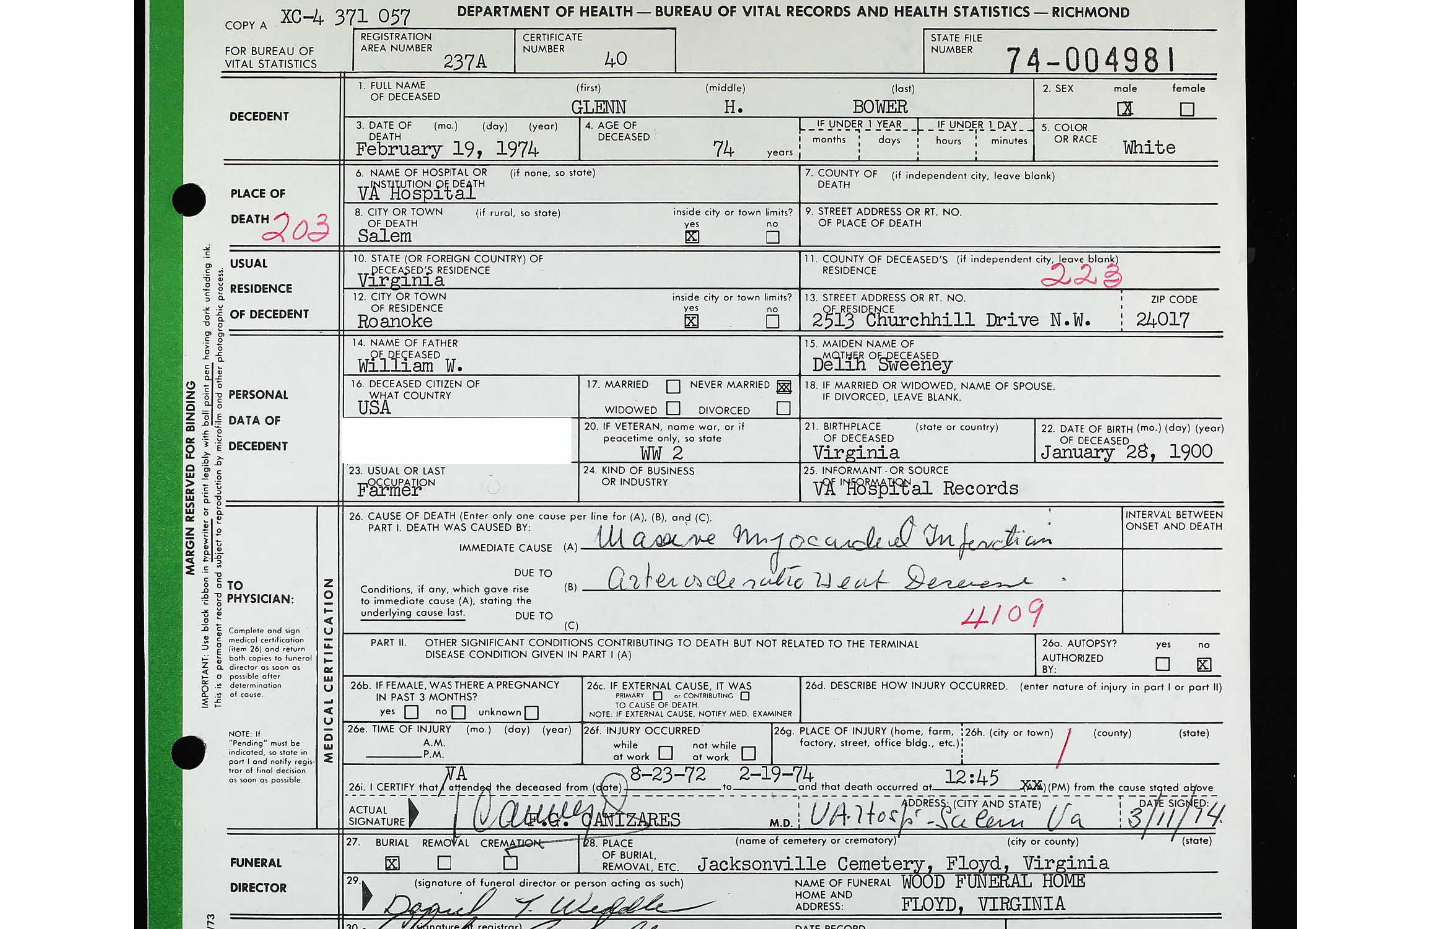 COPY A XC-4 371 057 DEPARTMENT OF HEALTH — BUREAU OF VITAL RECORDS AND HEALTH STATISTICS — RICHMOND
FOR BUREAU OF VITAL STATISTICS
REGISTRATION AREA NUMBER 237A
CERTIFICATE NUMBER 40
STATE FILE NUMBER 74-004981
DECEDENT
1. FULL NAME OF DECEASED (first) (middle) (last)
GLENN H. BOWER
2. SEX male female
X
3. DATE OF DEATH (mo.) (day) (year)
February 19, 1974
4. AGE OF DECEASED
74 years
IF UNDER 1 YEAR IF UNDER 1 DAY
months days hours minutes
5. COLOR OR RACE
White
PLACE OF DEATH 203
6. NAME OF HOSPITAL OR INSTITUTION OF DEATH (if none, so state)
VA Hospital
7. COUNTY OF DEATH (if independent city, leave blank)
8. CITY OR TOWN OF DEATH (if rural, so state)
Salem
inside city or town limits?
yes no
X
9. STREET ADDRESS OR RT. NO. OF PLACE OF DEATH
USUAL RESIDENCE OF DECEDENT
10. STATE (OR FOREIGN COUNTRY) OF DECEASED'S RESIDENCE
Virginia
11. COUNTY OF DECEASED'S RESIDENCE (if independent city, leave blank)
223
12. CITY OR TOWN OF RESIDENCE
Roanoke
inside city or town limits?
yes no
X
13. STREET ADDRESS OR RT. NO. OF RESIDENCE
2513 Churchhill Drive N.W.
ZIP CODE
24017
PERSONAL DATA OF DECEDENT
14. NAME OF FATHER OF DECEASED
William W.
15. MAIDEN NAME OF MOTHER OF DECEASED
Delih Sweeney
16. DECEASED CITIZEN OF WHAT COUNTRY
USA
17. MARRIED NEVER MARRIED X
WIDOWED DIVORCED
18. IF MARRIED OR WIDOWED, NAME OF SPOUSE.
IF DIVORCED, LEAVE BLANK.
20. IF VETERAN, name war, or if peacetime only, so state
WW 2
21. BIRTHPLACE OF DECEASED (state or country)
Virginia
22. DATE OF BIRTH (mo.) (day) (year) OF DECEASED
January 28, 1900
23. USUAL OR LAST OCCUPATION
Farmer
24. KIND OF BUSINESS OR INDUSTRY
25. INFORMANT OR SOURCE OF INFORMATION
VA Hospital Records
MARGIN RESERVED FOR BINDING
IMPORTANT: Use black ribbon in typewriter or print legibly with ball point pen having dark unfading ink.
This is a permanent record and subject to reproduction by microfilm and other photographic process.
TO PHYSICIAN:
Complete and sign
medical certification
(item 26) and return
both copies to funeral
director as soon as
possible after
determination
of cause.
NOTE: If
"Pending" must be
indicated, so state in
part I and notify regis-
trar of final decision
as soon as possible.
MEDICAL CERTIFICATION
26. CAUSE OF DEATH (Enter only one cause per line for (A), (B), and (C).
PART I. DEATH WAS CAUSED BY:
INTERVAL BETWEEN ONSET AND DEATH
IMMEDIATE CAUSE (A) Massive Myocardial Infarction
DUE TO
(B) Arteriosclerotic Heart Disease
Conditions, if any, which gave rise
to immediate cause (A), stating the
underlying cause last. DUE TO
(C)
4109
PART II. OTHER SIGNIFICANT CONDITIONS CONTRIBUTING TO DEATH BUT NOT RELATED TO THE TERMINAL
DISEASE CONDITION GIVEN IN PART I (A)
26a. AUTOPSY? yes no
AUTHORIZED BY: X
26b. IF FEMALE, WAS THERE A PREGNANCY IN PAST 3 MONTHS?
yes no unknown
26c. IF EXTERNAL CAUSE, IT WAS
PRIMARY or CONTRIBUTING
TO CAUSE OF DEATH.
NOTE: IF EXTERNAL CAUSE, NOTIFY MED. EXAMINER
26d. DESCRIBE HOW INJURY OCCURRED. (enter nature of injury in part I or part II)
26e. TIME OF INJURY (mo.) (day) (year)
A.M.
P.M.
26f. INJURY OCCURRED
while at work not while at work
26g. PLACE OF INJURY (home, farm, factory, street, office bldg., etc.)
26h. (city or town) (county) (state)
VA 8-23-72 2-19-74 12:45
26i. I CERTIFY that attended the deceased from (date) to and that death occurred at XX (PM) from the cause stated above
ACTUAL SIGNATURE F.G. CANIZARES M.D.
ADDRESS: (CITY AND STATE)
VA Hosp - Salem Va
DATE SIGNED:
3/11/74
FUNERAL DIRECTOR
27. BURIAL REMOVAL CREMATION
X
28. PLACE OF BURIAL, REMOVAL, ETC. (name of cemetery or crematory) (city or county) (state)
Jacksonville Cemetery, Floyd, Virginia
29. (signature of funeral director or person acting as such)
Daniel T. Weddle
NAME OF FUNERAL HOME AND ADDRESS:
WOOD FUNERAL HOME
FLOYD, VIRGINIA
30. (signature of registrar) DATE RECORD